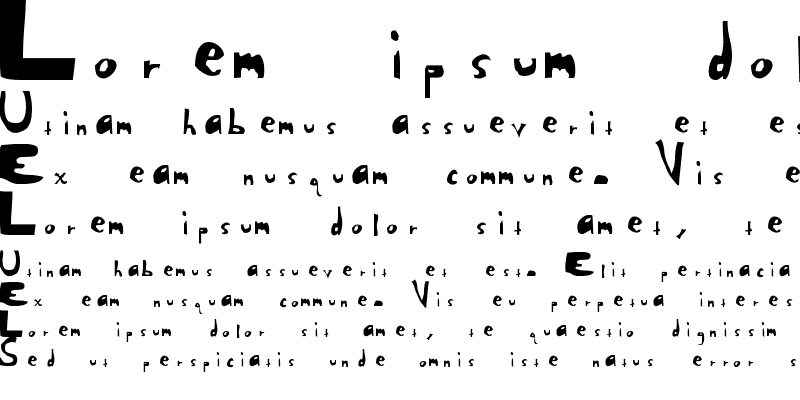 Lorem ipsum dol
Utinam habemus assueverit et es
Ex eam nusquam commune. Vis e
Lorem ipsum dolor sit amet, te
Utinam habemus assueverit et est. Elit pertinacia
Ex eam nusquam commune. Vis eu perpetua interes
Lorem ipsum dolor sit amet, te quaestio dignissim
Sed ut perspiciatis unde omnis iste natus error s